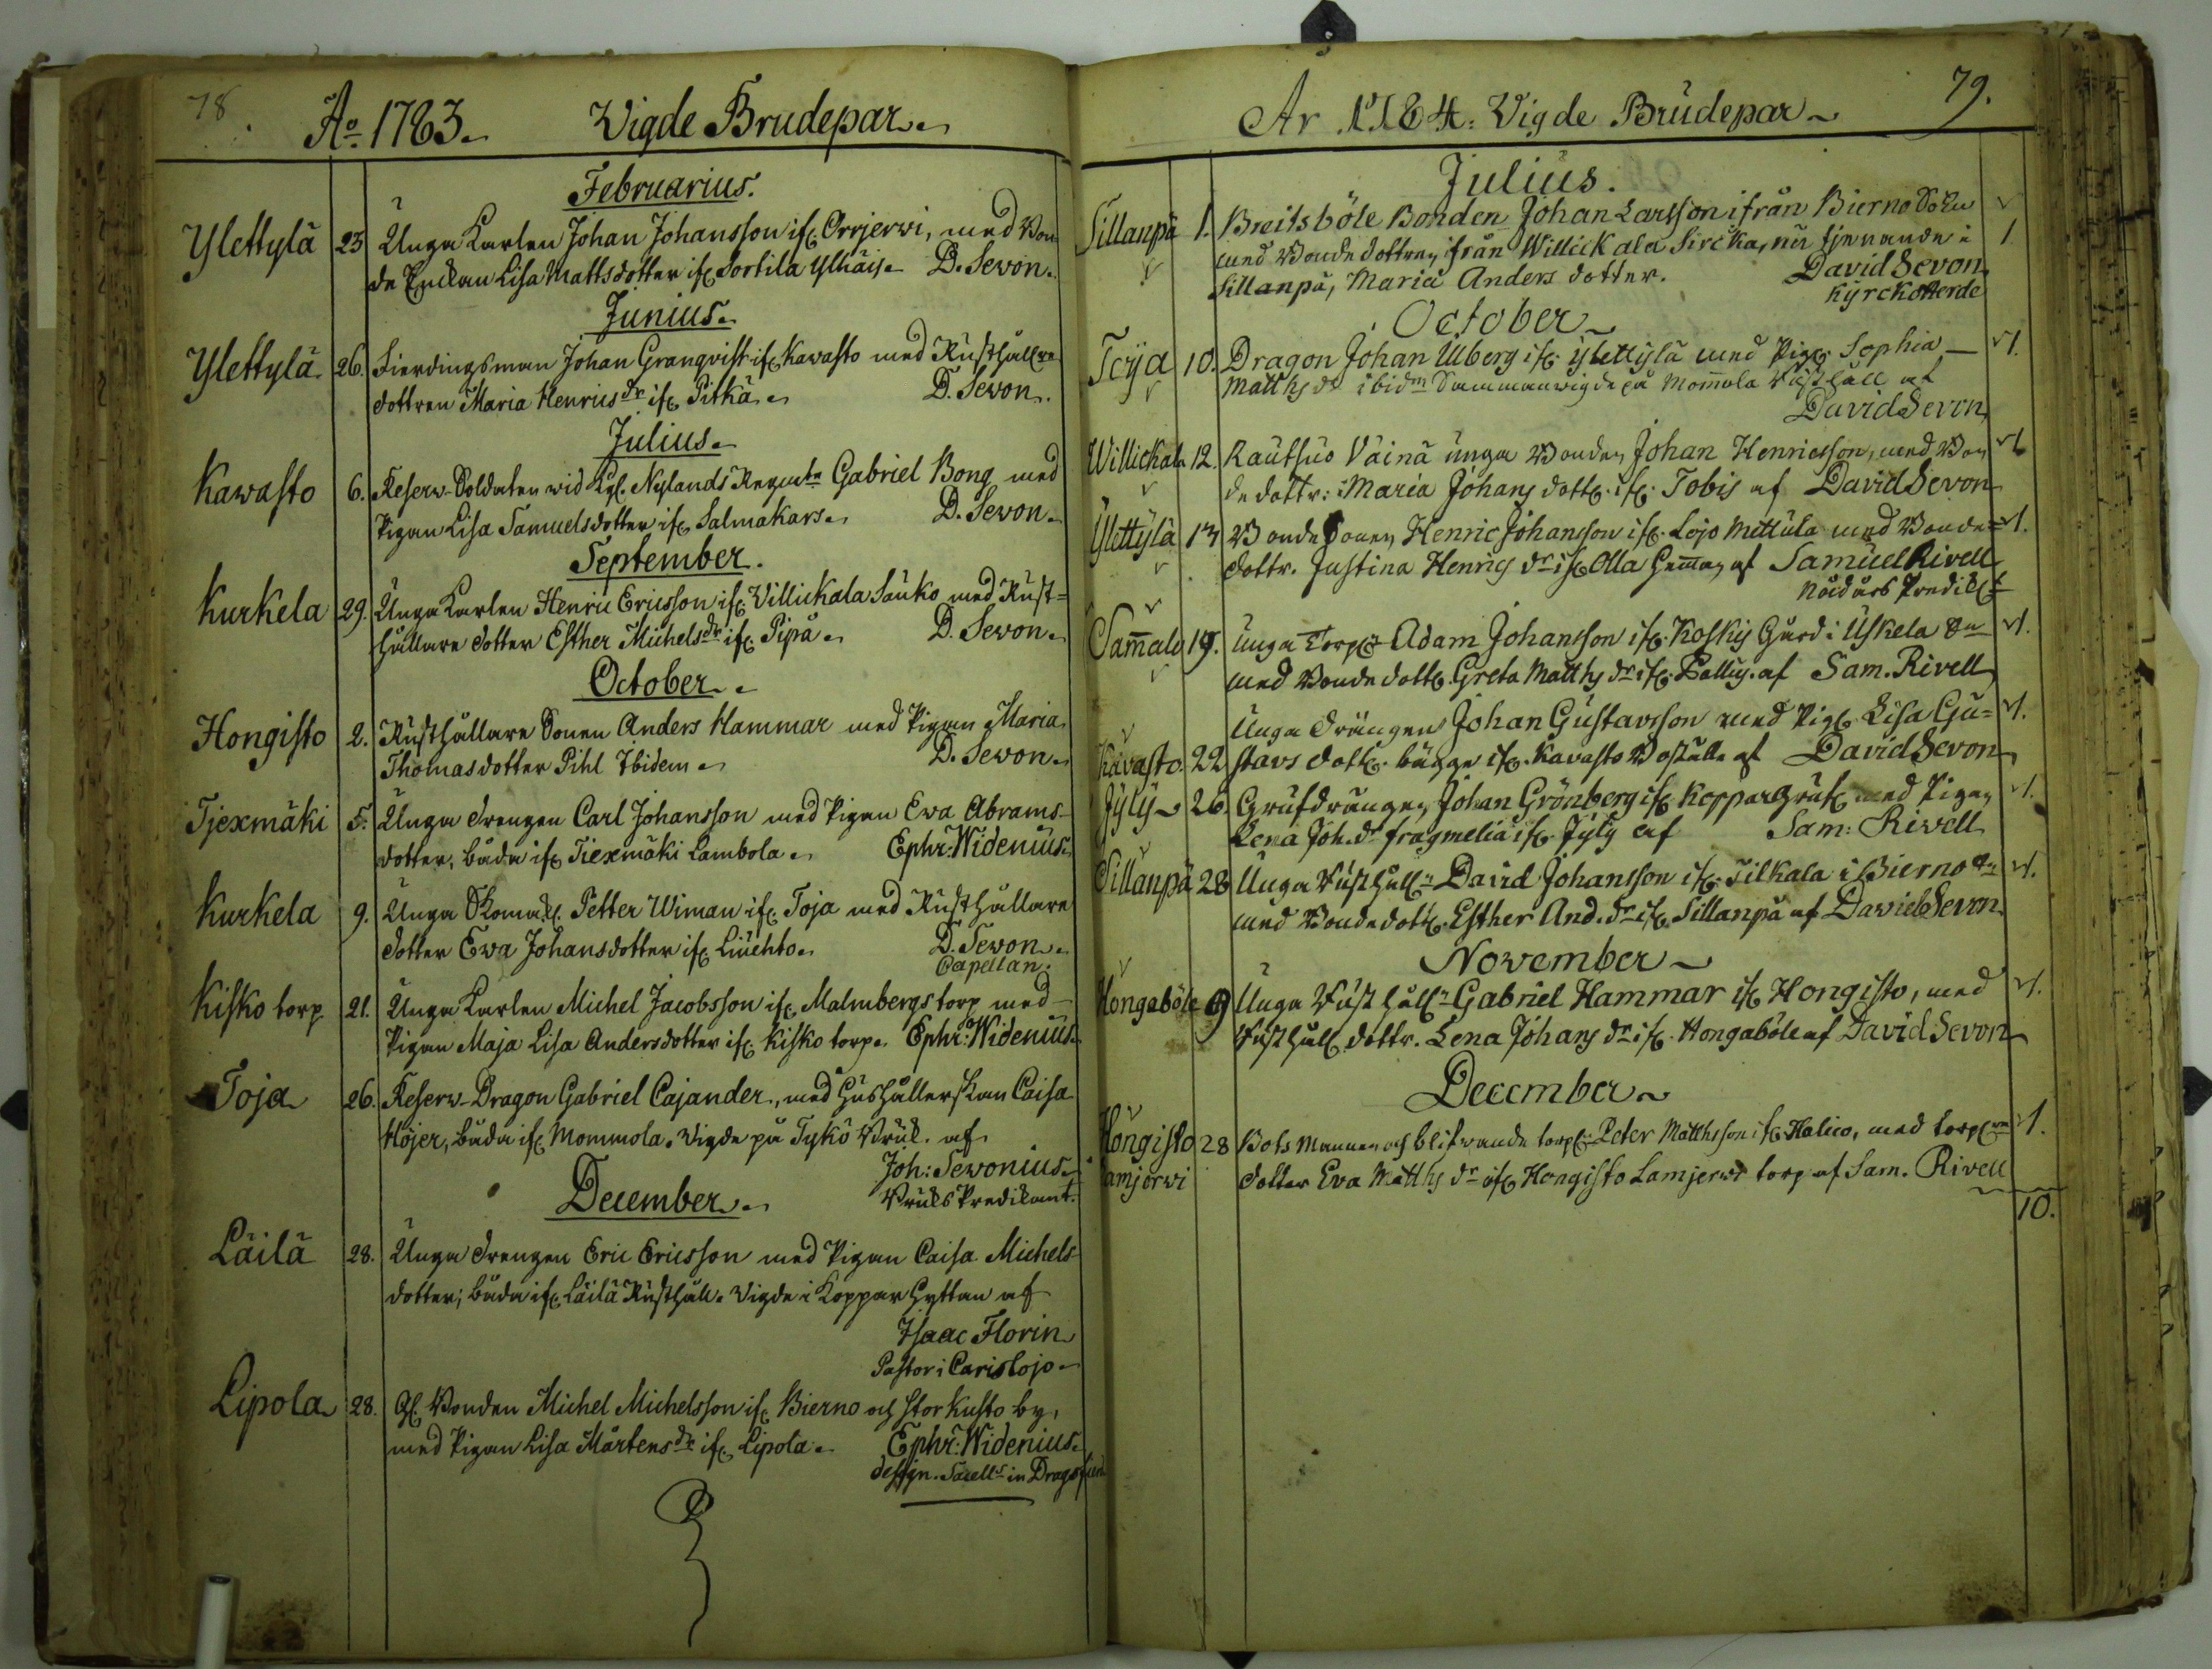 78
Aº 1783. Wigde Brudepar.
Februarius.
Ylettylä 23 Unga Karlen Johan Johansson if. Orrjerwi, med Bon-
de Enckan Lisa Mattsdotter if. Sortila Ylhäis. D. Sevon.
Junius.
Ylettylä. 26. Fierdingsman Johan Granqvist if. Kawasto med Rusthållre
dottren Maria Henricsdr if. Pitkä. D. Sevon.
Julius.
Kawasto 6. Reserv-Soldaten wid Kgl. Nylands Regmte Gabriel Bong med
Pigan Lisa Samuelsdotter if. Salmakars. D. Sevon.
September.
Kurkela 29. Unga Karlen Henric Ericsson if. Villickala Sauko med Rust=
hållare dotter Esther Michelsdr if. Pipä. D. Sevon.
October.
Hongisto 2. Rusthållare Sonen Anders Hammar med Pigan Maria
Thomasdotter Pihl Ibidem. D. Sevon.
Tjexmäki 5. Unga drengen Carl Johansson med Pigan Ewa Abrams-
dotter, båda if. Tiexmäki Lambola. Ephr: Widenius.
Kurkela 9. Unga Skomak. Petter Wiman if. Toja med Rusthållare
dotter Ewa Johansdotter if. Liuchto. D. Sevon.
Capellan.
Kisko torp 21. Unga Karlen Michel Jacobsson if. Malmbergs torp med
Pigan Maja Lisa Andersdotter if. Kisko torp. Ephr: Widenius.
Toja 26. Reserv-Dragon Gabriel Cajander, med Hushållerskan Caisa
Höjer, båda if. Mommola. Vigde på Tykö Bruk. af
Joh: Sevonius.
December. Bruks Predikant.
Läilä 28. Unga drengen Eric Ericsson med Pigan Caisa Michels
dotter; båda if. Läilä Rusthåll. Vigde i Koppar Hyttan af
Isaac Florin
Pastor i Carislojo.
Lipola 28. Gl. Bonden Michel Michelsson if. Bierno och Storkusto by,
med Pigan Lisa Mårtensdr if. Lipola. Ephr: Widenius.
design. Sacells in Dragsfierd
79.
År 1784. Vigde Brudepar
Julius.
Sillanpä 1. Breitsböle Bonden Johan Larsson ifrån Bierno Sokn
med Bondedottren ifrån Willickala Sircka, nu tjenande i 1
Sillanpä, Maria Anders dotter. David Sevon
Kyrckoherde
October
Toija 10. Dragon Johan Ulberg if. Ylettylä med Pig. Sophia 1.
Matths dr ibidm Sammanwigde på Mom̄ola Rusthåll af
David Sevon
Willickala 12. Rautsuo Väinä unga Bonden Johan Henricsson, med Bon 1
de dottr: Maria Johans dott. if. Tobis af David Sevon
Ylettylä 17 Bonde Sonen Henric Johansson if. Lojo Mettula med Bonde= 1.
dottr. Justina Henrics dr if. Olla Hemman af Samuel Rivell
Nådårs Predikt
Sam̄alo 19. Unga Torp. Adam Johansson if. Koskis Gård i Uskela Sn 1.
med Bonde dott. Greta Matths dr if. Pallis. af Sam. Rivell
Unga Drängen Johan Gustavsson med Pig. Lisa Gu= 1.
Kavasto 22 stavs dott. bägge if. Kavasto Boställe af David Sevon
Jyly 26 Grufdrängen Johan Grönberg if. Koppargruf. med Pigan 1.
Lena Joh.dr fragmelia if. Jyly af Sam: Rivell
Sillanpä 28 Unga Rusthållr David Johansson if. Tilkala i Bierno Sn 1.
med Bondedott. Esther And. dr if. Sillanpä af David Sevon
November
Hongaböle 9 Unga Rusthållr Gabriel Hammar if Hongisto, med 1.
Rusthåll. dottr. Lena Johans dr if. Hongaböle af David Sevon
December
Hongisto 28 Botsmannen och blifwande torp. Peter Matthsson if. Halico, med torpre 1.
Lamjerwi dotter Eva Matths dr if. Hongisto Lamjerwi torp af Sam. Rivell
10.